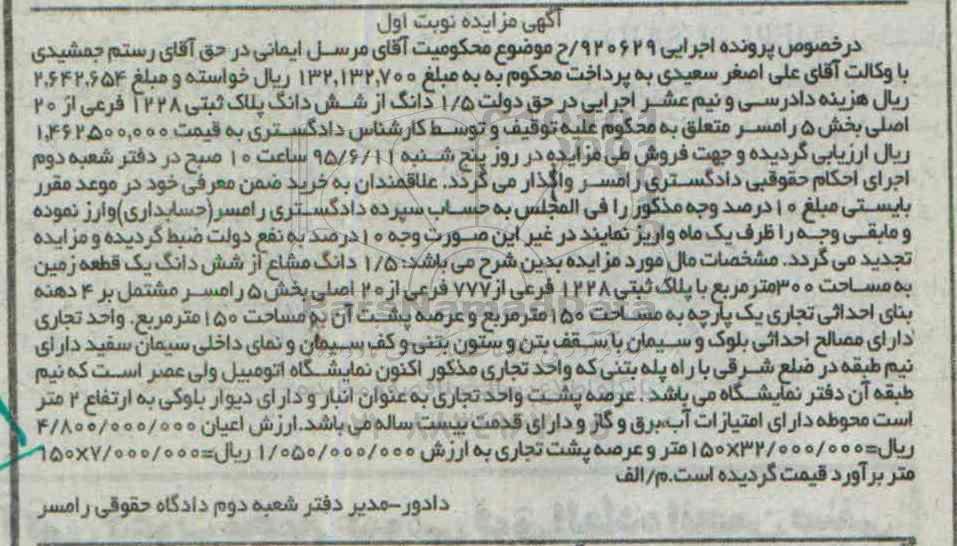 آگهی مزایده نوبت اول
درخصوص پرونده اجرایی ۹۲۰۶۲۹/ح موضوع محکومیت آقای مرسل ایمانی در حق آقای رستم جمشیدی
با وکالت آقای علی اصغر سعیدی به پرداخت محکوم به به مبلغ ۱۳۲,۱۳۲,۷۰۰ ریال خواسته و مبلغ ۲,۶۴۲,۶۵۴
ریال هزینه دادرسی و نیم عشر اجرایی در حق دولت ۱/۵ دانگ از شش دانگ پلاک ثبتی ۱۲۲۸ فرعی از ۲۰
اصلی بخش ۵ رامسر متعلق به محکوم علیه توقیف و توسط کارشناس دادگستری به قیمت ۱,۴۶۲,۵۰۰,۰۰۰
ریال ارزیابی گردیده و جهت فروش طی مزایده در روز پنج شنبه ۹۵/۶/۱۱ ساعت ۱۰ صبح در دفتر شعبه دوم
اجرای احکام حقوقی دادگستری رامسر واگذار می گردد. علاقمندان به خرید ضمن معرفی خود در موعد مقرر
بایستی مبلغ ۱۰درصد وجه مذکور را فی المجلس به حساب سپرده دادگستری رامسر(حسابداری)وارز نموده
و مابقی وجه را ظرف یک ماه واریز نمایند در غیر این صورت وجه ۱۰درصد به نفع دولت ضبط گردیده و مزایده
تجدید می گردد. مشخصات مال مورد مزایده بدین شرح می باشد: ۱/۵ دانگ مشاع از شش دانگ یک قطعه زمین
به مساحت ۳۰۰مترمربع با پلاک ثبتی ۱۲۲۸ فرعی از۷۷۷ فرعی از۲۰ اصلی بخش ۵ رامسر مشتمل بر ۴ دهنه
بنای احداثی تجاری یک پارچه به مساحت ۱۵۰مترمربع و عرصه پشت آن به مساحت ۱۵۰مترمربع. واحد تجاری
دارای مصالح احداثی بلوک و سیمان با سقف بتن و ستون بتنی و کف سیمان و نمای داخلی سیمان سفید دارای
نیم طبقه در ضلع شرقی با راه پله بتنی که واحد تجاری مذکور اکنون نمایشگاه اتومبیل ولی عصر است که نیم
طبقه آن دفتر نمایشگاه می باشد . عرصه پشت واحد تجاری به عنوان انبار و دارای دیوار بلوکی به ارتفاع ۲ متر
است محوطه دارای امتیازات آب،برق و گاز و دارای قدمت بیست ساله می باشد.ارزش اعیان ۴/۸۰۰/۰۰۰/۰۰۰
ریال=۱۵۰x۳۲/۰۰۰/۰۰۰متر و عرصه پشت تجاری به ارزش ۱/۰۵۰/۰۰۰/۰۰۰ ریال=۱۵۰x۷/۰۰۰/۰۰۰
متر برآورد قیمت گردیده است.م/الف
دادور-مدیر دفتر شعبه دوم دادگاه حقوقی رامسر